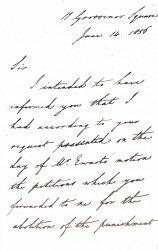 Grosvenor Square
June 14. 1856
Sir
I intended to have
informed you that I
had according to your
request presented on the
day of Mr Ewarts motion
the petitions which you
forwarded to me for the
abolition of the punishment